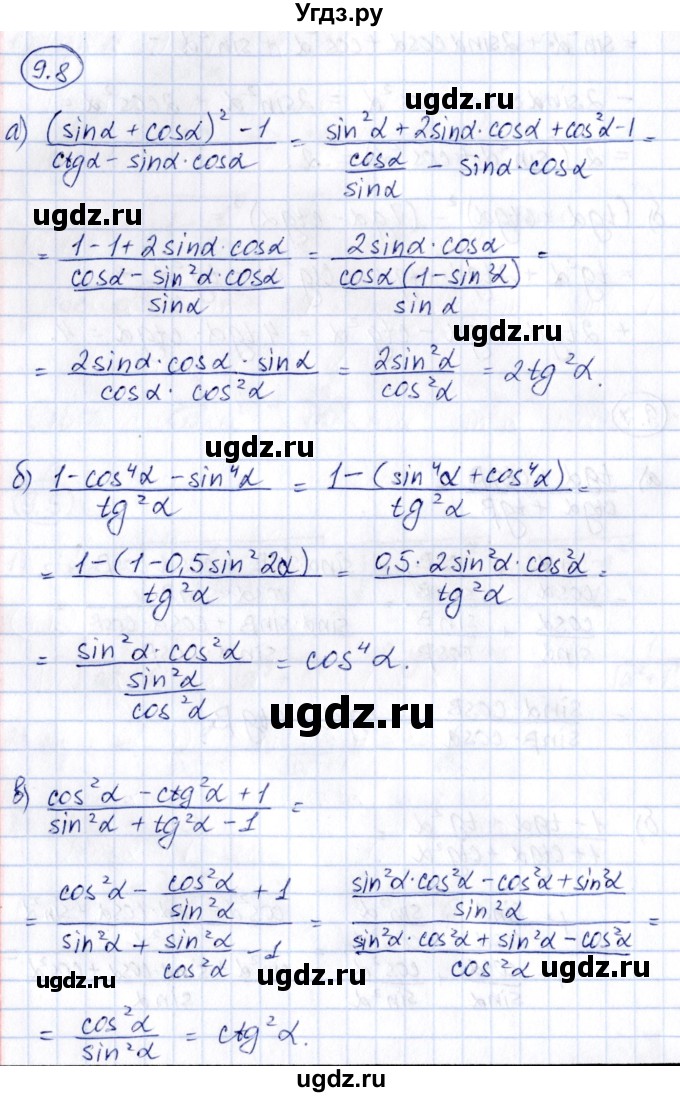 Угдз.ру
9.8
а) ((sinα + cosα)² - 1)/(ctgα - sinα·cosα) = (sin²α + 2sinα·cosα + cos²α - 1)/(cosα/sinα - sinα·cosα) =
ugdz.ru
= (1 - 1 + 2sinα·cosα)/((cosα - sin²α·cosα)/sinα) = (2sinα·cosα)/((cosα(1 - sin²α))/sinα) =
ugdz.ru
= (2sinα·cosα·sinα)/(cosα·cos²α) = 2sin²α/cos²α = 2tg²α.
ugdz.ru
б) (1 - cos⁴α - sin⁴α)/tg²α = (1 - (sin⁴α + cos⁴α))/tg²α =
= (1 - (1 - 0,5sin²2α))/tg²α = (0,5·2sin²α·cos²α)/tg²α =
= (sin²α·cos²α)/(sin²α/cos²α) = cos⁴α.
ugdz.ru
в) (cos²α - ctg²α + 1)/(sin²α + tg²α - 1) =
= (cos²α - cos²α/sin²α + 1)/(sin²α + sin²α/cos²α - 1) = ((sin²α·cos²α - cos²α + sin²α)/sin²α)/((sin²α·cos²α + sin²α - cos²α)/cos²α) =
ugdz.ru
ugdz.ru
= cos²α/sin²α = ctg²α.
ugdz.ru